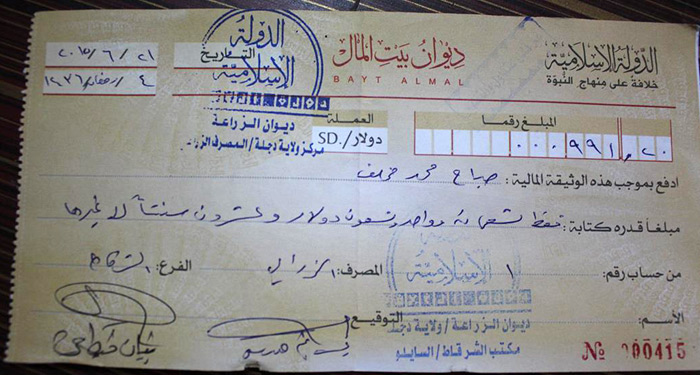 الدولة الإسلامية
خلافة على منهاج النبوة
ديوان بيت المال
BAYT ALMAL
التاريخ
٢٠١٥/٦/٢١
٤/رمضان/١٤٣٦
الدولة
الإسلامية
ديوان الزراعة
مركز ولاية دجلة/المصرف
المبلغ رقما
٠٠٠٩٩١,٢٠
العملة
دولار/.SD
ادفع بموجب هذه الوثيقة المالية: صباح محمد خلف
مبلغاً قدره كتابة: فقط تسعمائة وواحد وتسعون دولار وعشرون سنتاً لا غيرها
من حساب رقم: ١ المصرف: الزراعي الفرع: الشرقاط
الإسلامية
الأسم: التوقيع:
ديوان الزراعة/ولاية دجلة
مكتب الشرقاط/السايلو
№ 000415